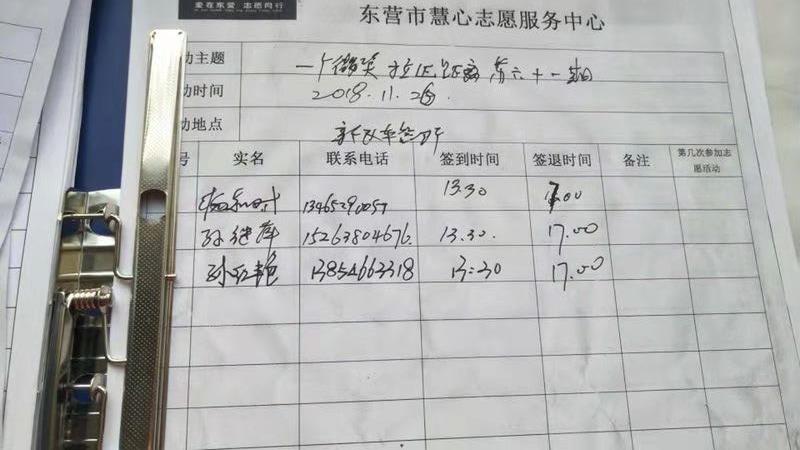 爱在东营 志愿同行
东营市慧心志愿服务中心
动主题 一个微笑 拉近距离 第六十一期
动时间 2018.11.26.
动地点
号 实名 联系电话 签到时间 签退时间 备注 第几次参加志愿活动
13465290057 13.30 17.00
孙继库 15263804676. 13.30. 17.00
孙红艳 13854663318 13:30 17.00